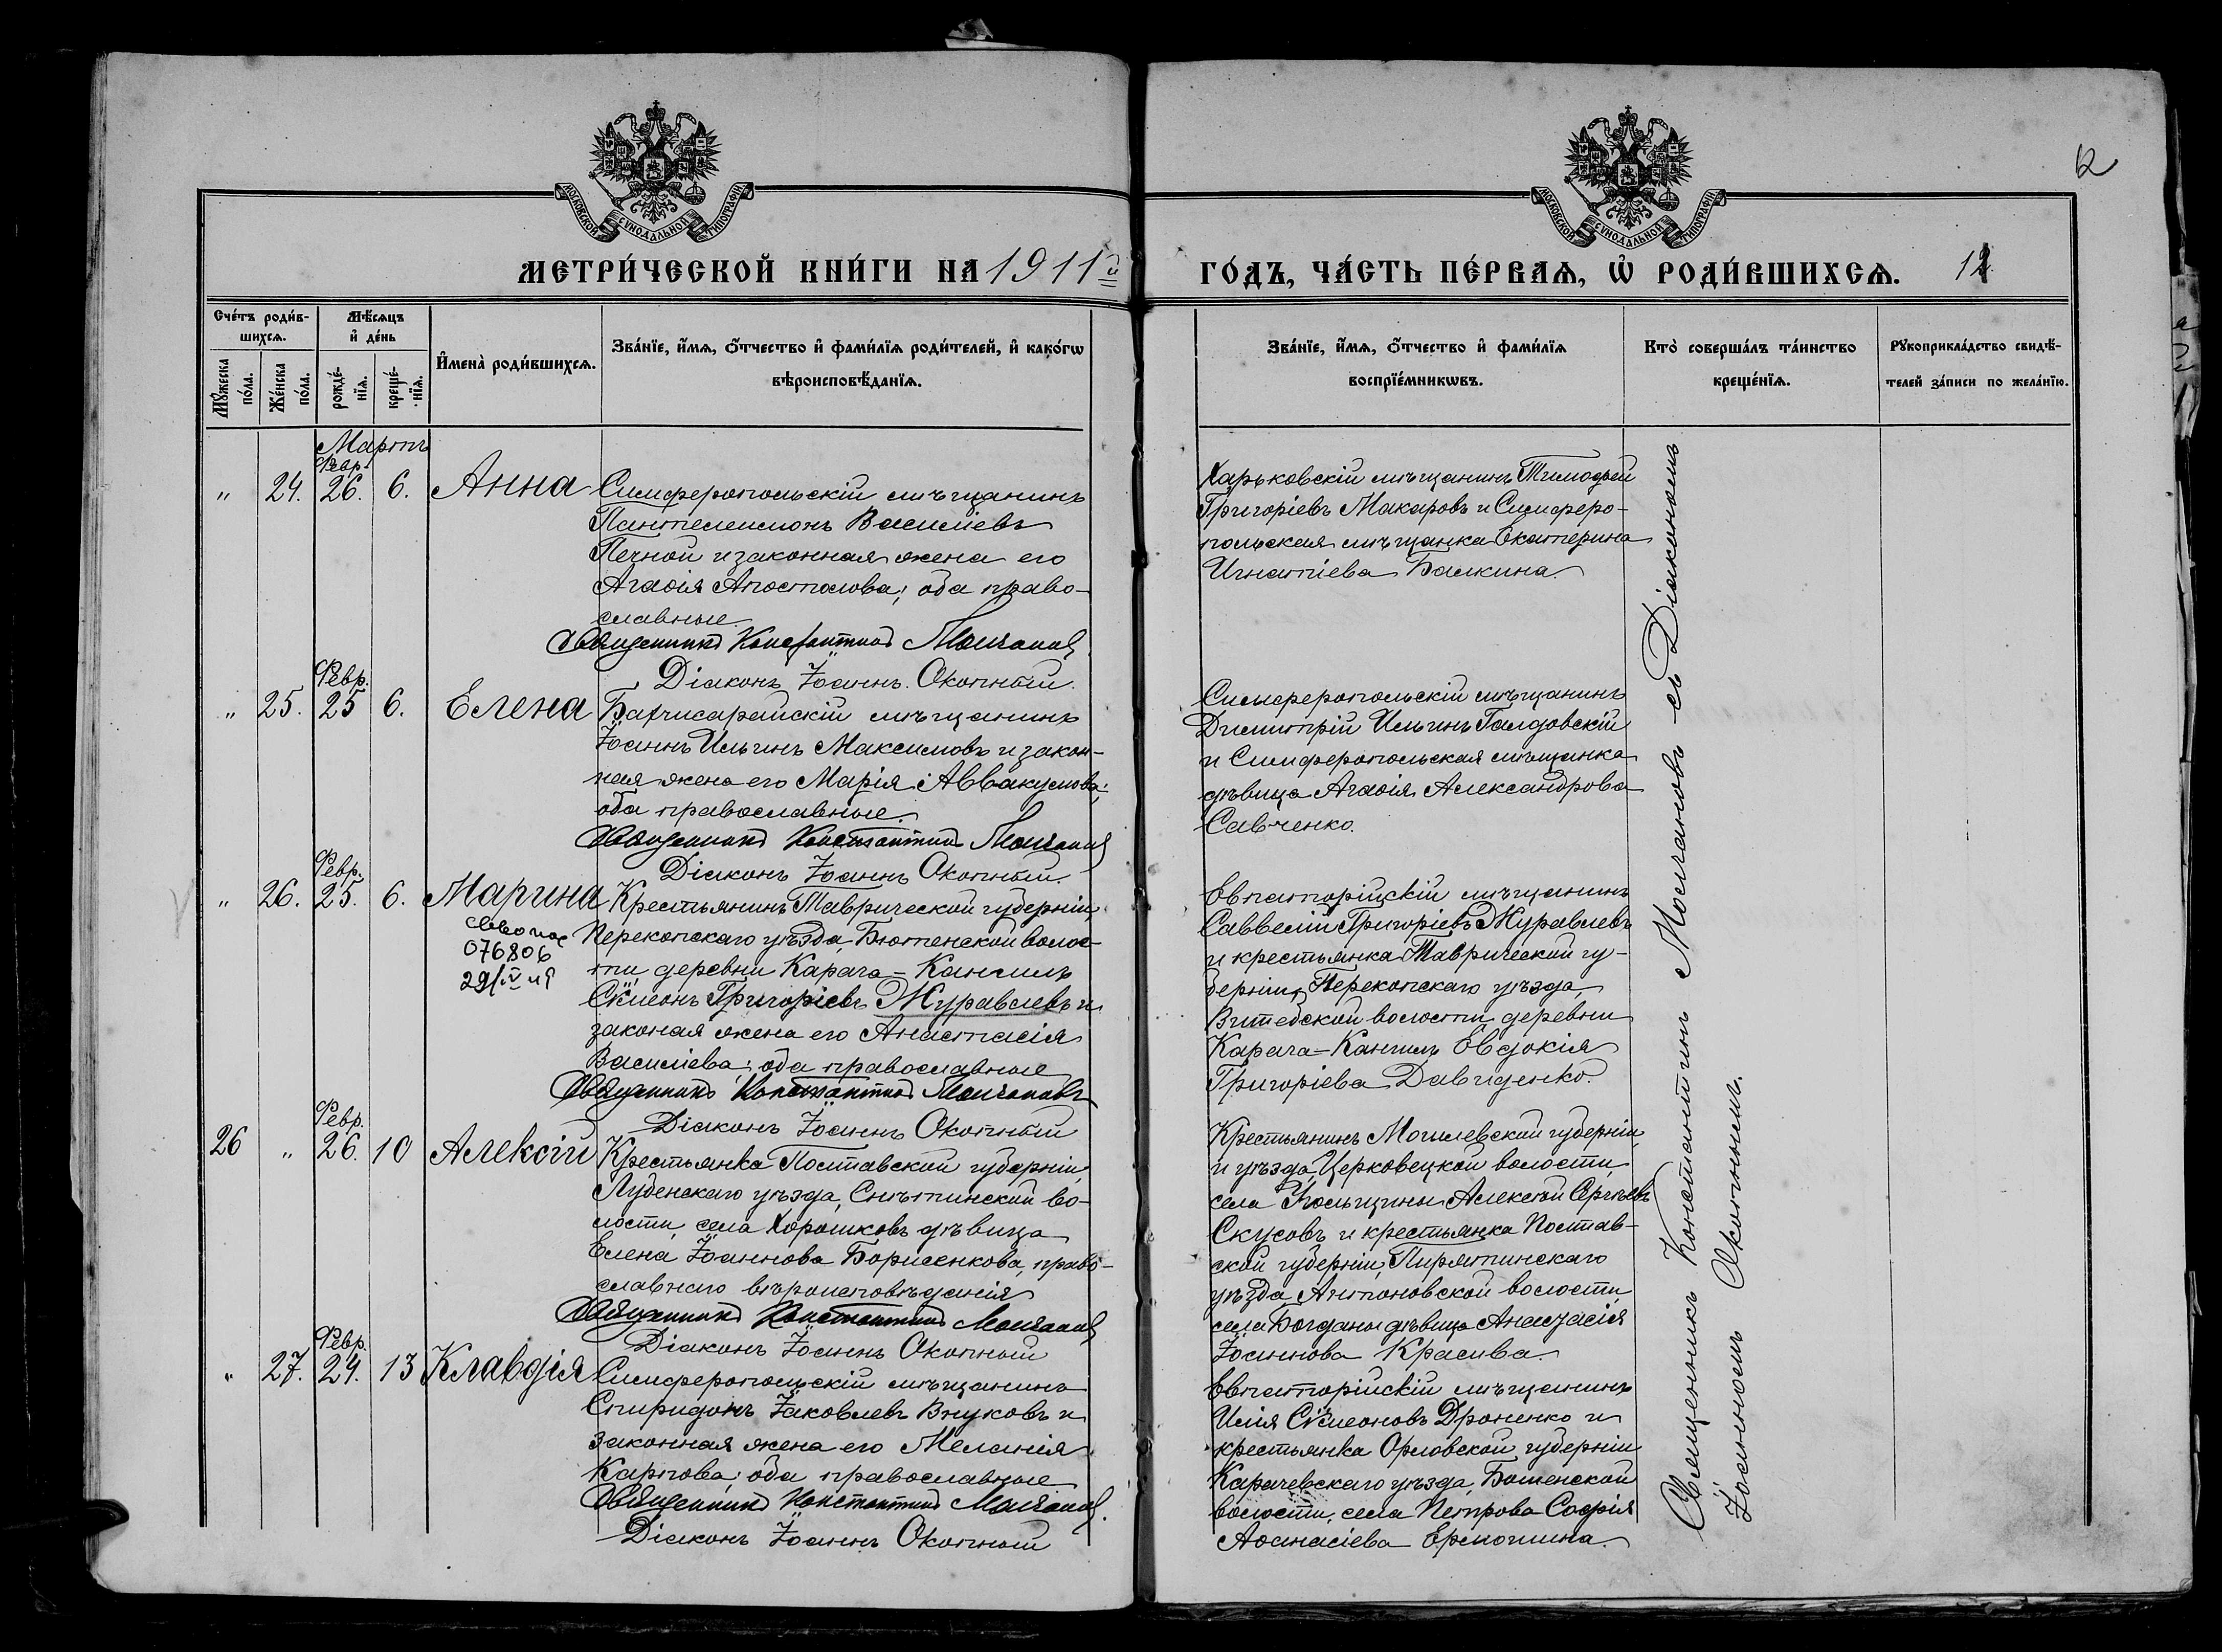 12
МОСКОВСКОЙ СѴНОДАЛЬНОЙ ТИПОГРАФІИ
МОСКОВСКОЙ СѴНОДАЛЬНОЙ ТИПОГРАФІИ
МЕТРИ́ЧЕСКОЙ КНИ́ГИ НА 1911й
ГО́ДЪ, ЧА́СТЬ ПЕ́РВАѦ, Ѽ РОДИ́ВШИХСѦ. 12
Сче́тъ роди́в-
шихсѧ.
Мꙋ́жеска
по́ла.
Же́нска
по́ла.
Мѣ́сѧцъ
и҆ де́нь
рожде́-
нїѧ.
креще́-
нїѧ.
И҆мена̀ роди́вшихсѧ.
Зва́нїе, и҆́мѧ, ѻ҆́тчество и҆ фами́лїѧ роди́телей, и҆ како́гѡ
вѣроисповѣ́данїѧ.
Зва́нїе, и҆́мѧ, ѻ҆́тчество и҆ фами́лїѧ
воспрїе́мникѡвъ.
Кто̀ соверша́лъ та́инство
креще́нїѧ.
Рꙋкоприкла́дство свидѣ́-
телей за́писи по жела́нїю.
Мартъ
Февр.
" 24. 26. 6. Анна
Симферопольскій мѣщанинъ
Пантелеимонъ Василіевъ
Печной и законная жена его
Агаѳія Апостолова; оба право-
славные.
Священникъ Константинъ Молчановъ
Діаконъ Іоаннъ Окопный.
Харьковскій мѣщанинъ Тимофей
Григоріевъ Макаровъ и Симферо-
польская мѣщанка Екатерина
Игнатіева Балкина.
Февр.
" 25. 25 6. Елена
Бахчисарайскій мѣщанинъ
Іоаннъ Ильинъ Максимовъ и закон-
ная жена его Марія Аввакумова;
оба православные.
Священникъ Константинъ Молчановъ
Діаконъ Іоаннъ Окопный.
Симферопольскій мѣщанинъ
Димитрій Ильинъ Галдовскій
и Симферопольская мѣщанка
дѣвица Агаѳія Александрова
Савченко.
Февр.
" 26. 25. 6. Марина
076806
Крестьянинъ Таврической губерніи,
Перекопскаго уѣзда, Бютенской волос-
ти, деревни Карача-Кангилъ
Сѵмеонъ Григоріевъ Журавлевъ и
законая жена его Анастасія
Василіева; оба православные
Священникъ Константинъ Молчановъ
Діаконъ Іоаннъ Окопный
Евпаторійскій мѣщанинъ
Савветій Григоріевъ Журавлевъ
и крестьянка Таврической гу-
берніи, Перекопскаго уѣзда,
Витебской волости деревни
Карача-Кангилъ Евдокія
Григоріева Давиденко.
Февр.
26 " 26. 10 Алексій
Крестьянка Полтавской губерніи,
Лубенскаго уѣзда, Снѣтинской во-
лости, села Хорошковъ дѣвица
Елена Іоаннова Борисенкова, право-
славнаго вѣроисповѣданія
Священникъ Константинъ Молчановъ
Діаконъ Іоаннъ Окопный
Крестьянинъ Могилевской губерніи
и уѣзда, Церковецкой волости,
села Алексѣй Сергѣевъ
Скусовъ и крестьянка Полтав-
ской губерніи, Пирятинскаго
уѣзда Антоновской волости,
села Богданы дѣвица Анастасія
Іоаннова Красива.
Февр.
" 27. 24. 13 Клавдія
Симферопольскій мѣщанинъ
Спиридонъ Іаковлевъ Внуковъ и
законная жена его Меланія
Карпова; оба православные
Священникъ Константинъ Молчановъ.
Діаконъ Іоаннъ Окопный
Евпаторійскій мѣщанинъ
Илія Сѵмеоновъ Дроненко и
крестьянка Орловской губерніи
Карачевскаго уѣзда, Бошенской
волости, села Петрова Софія
Аѳанасіева Ермошина.
Священникъ Константинъ Молчановъ съ Діакономъ
Іоанномъ Окопнымъ.